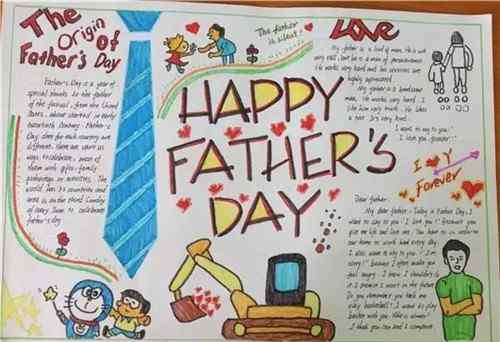 The
Origin
Of
Father's Day
Father's Day is a year of
special thanks to the father
of the festival, from the United
States, about started in early
twentieth century. Father's
Day date for each country are
different, there are
ways to celebrate, most of
them with gifts, family
gatherings or activities. The
world has 52 countries and
area is on the third Sunday
of every June to celebrate
Father's day
The father
is
HAPPY
FATHER'S
DAY
LOVE
My father is a kind of man. He is not
very tall, but he is a man of
He works very hard and his
highly
My father is a handsome
man. He works very hard. I
like him very much. He likes
a
I want to say to you:
I love you, forever!
I Y
Forever
Dear father:
My dear father, Today is Father's Day, I
want to say to you: "I love you!" Because you
give me life and love me. You have to in order to
our home to work hard every day.
I also want to say to you: "I'm
sorry!" because I often make you
feel angry. I know I shouldn't do
it I promise I won't in the future.
Do you remember you took me
play basketball? I want to play
basket with you. Who is winner?
I think you can and I